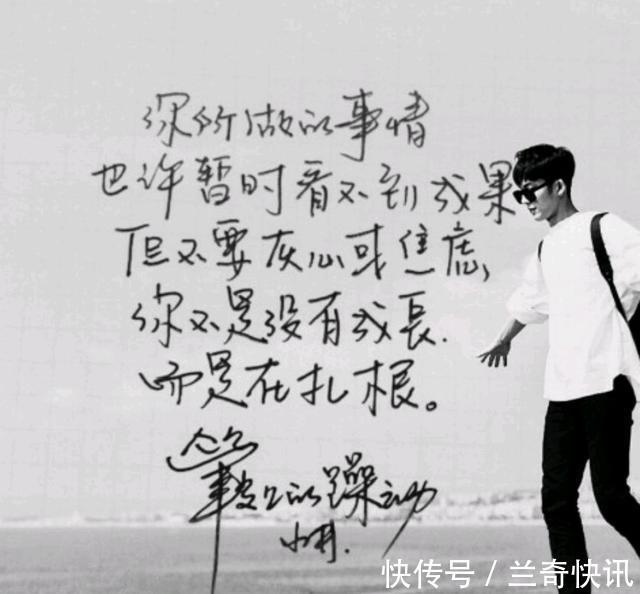 你所做的事情
也许暂时看不到成果
但不要灰心或焦虑,
你不是没有成長.
而是在扎根。
的躁动
快传号/兰奇快讯